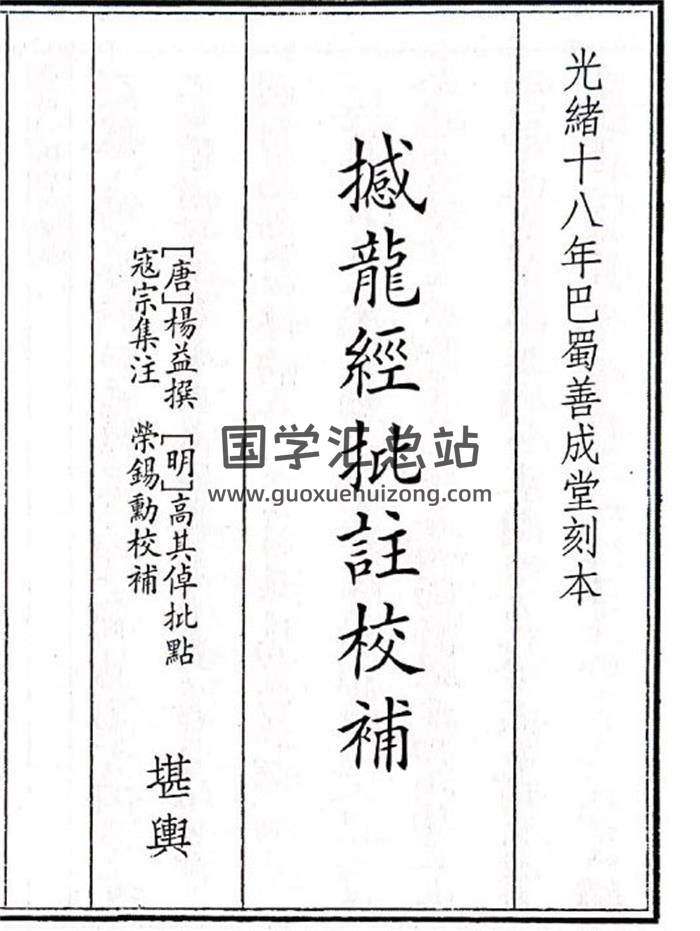 光緒十八年巴蜀善成堂刻本
撼龍經批註校補
[唐]楊益撰　[明]高其倬批點
寇宗集注　榮錫勳校補
堪輿
国学汇总站
www.guoxuehuizong.com